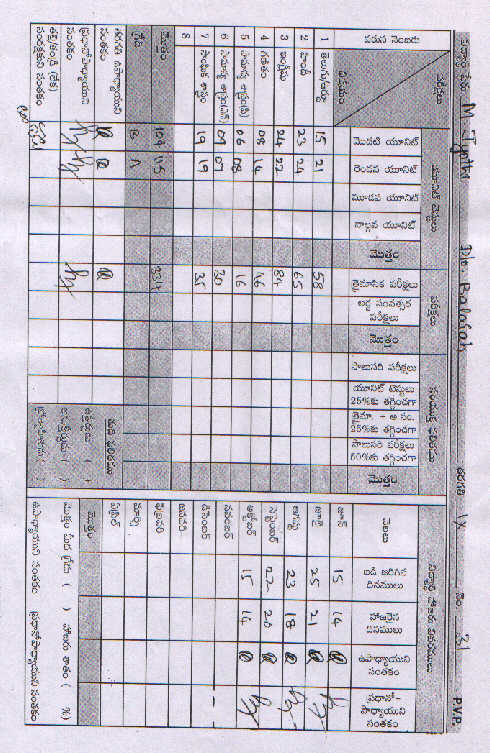 విద్యార్థి పేరు M. Jyothi D/o Balaiah 2013 IX నెం 31 P.V.P.
వరుస నెంబరు విషయం పరీక్షలు
యూనిట్ టెస్టులు
మొదటి యూనిట్ రెండవ యూనిట్ మూడవ యూనిట్ నాల్గవ యూనిట్ మొత్తం
త్రైమాసిక పరీక్షలు అర్ధ సంవత్సర పరీక్షలు మొత్తం
సాలుసరి పరీక్షలు యూనిట్ టెస్టులు 25%కు తగ్గించగా త్రైమా. - అ.సం. 25%కు తగ్గించగా సాలుసరి పరీక్షలు 50%కు తగ్గించగా మొత్తం
1 తెలుగు/ఉర్దూ 15 21 58
2 హిందీ 23 24 65
3 ఇంగ్లీషు 24 22 84
4 గణితం 08 14 16
5 సామాన్య శాస్త్రం 06 08 16
6 సామాన్య శాస్త్రం 09 07 30
7 సాంఘిక శాస్త్రం 19 19 35
8
మొత్తం 104 115
గ్రేడ్ B A
తరగతి ఉపాధ్యాయుని సంతకం
ప్రధానోపాధ్యాయుని సంతకం
తల్లి/తండ్రి (లేక) సంరక్షకుని సంతకం
నెలలు బడి జరిగిన దినములు హాజరైన దినములు ఉపాధ్యాయుని సంతకం ప్రధానో-పాధ్యాయుని సంతకం
జూన్ 15 14
జూలై 25 21
ఆగస్టు 23 18
సెప్టెంబర్ 22 20
అక్టోబర్ 15 14
నవంబర్
డిసెంబర్
జనవరి
ఫిబ్రవరి
మార్చి
ఏప్రిల్
మొత్తం
మొత్తం మీద గ్రేడు ( ) హాజరు శాతం ( %)
ఉపాధ్యాయుని సంతకం ప్రధానోపాధ్యాయుని సంతకం